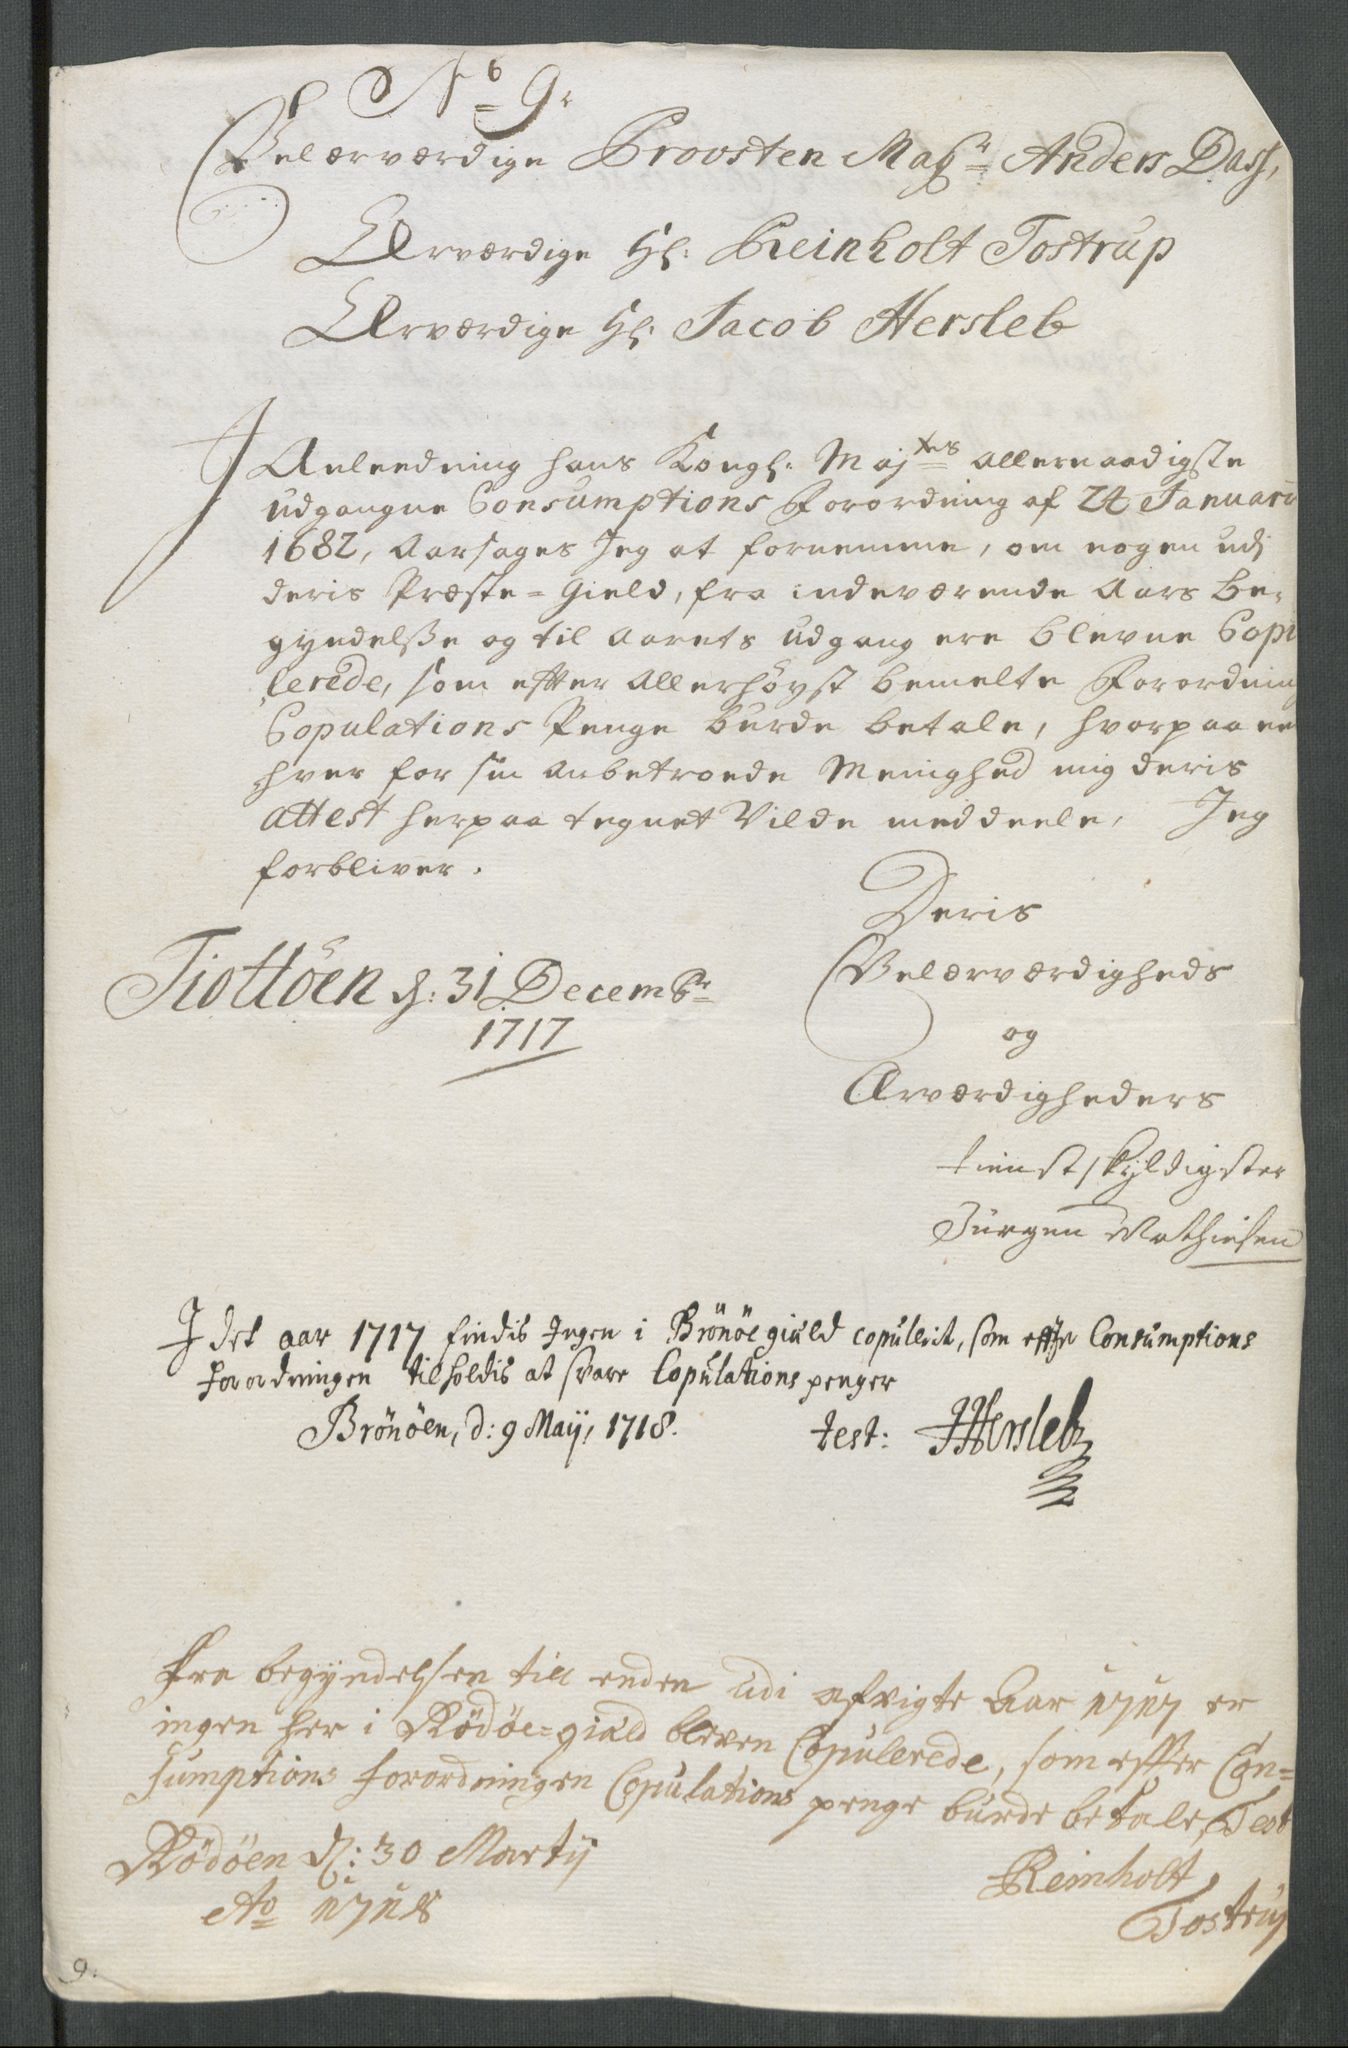 No 9.
Velærværdige Provsten Magr Anders Dass,
Ærværdige Hl: Reinholt Tostrup
Ærværdige Hl: Jacob Hersleb
I
Anleedning hans Kongl: Majtes allernaadigste
udgangne Consumptions Forordning af 24 Januarii
1682, Aarsages Jeg at fornemme, om nogen udi
deris Præste=Gield, fra indeværende Aars be-
gyndelsse og til Aarets udgang ere blevne Copu
lerede, som efter Allerhöyst bemelte Forordning
Copulations Penge burde betale, hvorpaa en
hver for sin Anbetroede Menighed mig deris
attest herpaa tegnet Vilde meddeele, Jeg
forbliver.
Deris
Velærværdigheds
og
Ærværdigheders
tienstskyldigster
Jürgen Mathiesen
Tiottöen d: 31 Decembr
1717
I det aar 1717 findis Ingen i Brönöe gield copulerit, som efter Consumptions
forordningen tilholdis at svare Copulations penger
Brönöen, d: 9 Maij, 1718. test: JHersleb
Fra begyndelsen till enden udi afvigte Aar 1717 er
ingen her i Rödöe=gield bleven Copulerede, som efter Con=
sumptions forordningen Copulations penge burde betale, Test
Rödöen d: 30 Martij
Ao 1718
Reinholt
Tostrup
9.